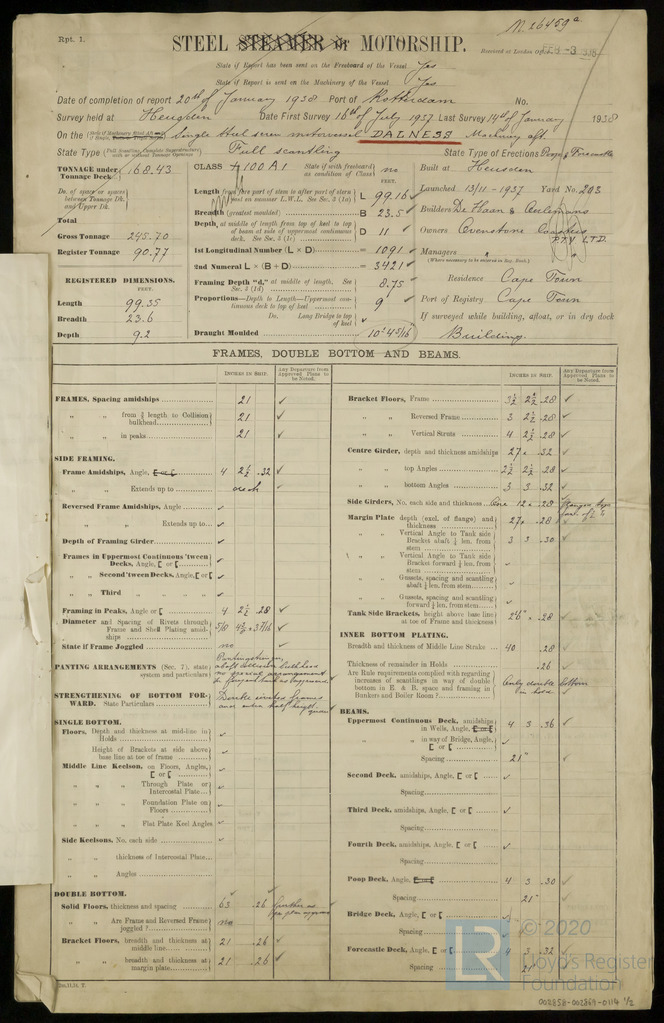 Rpt. 1.
N. 26459a
STEEL STEAMER or MOTORSHIP.
Received at London Office FEB -3 1938
State if Report has been sent on the Freeboard of the Vessel Yes
State if Report is sent on the Machinery of the Vessel Yes
Date of completion of report 20th of January 1938 Port of Rotterdam No.
Survey held at Heusden Date First Survey 16th of July 1937 Last Survey 14th of January 1938
On the Single steel screw motorvessel DALNESS Machinery aft
State Type Full scantling State Type of Erections Poop & Forecastle
TONNAGE under Tonnage Deck 168.43
Do. of space or spaces between Tonnage Dk. and Upper Dk.
Total
Gross Tonnage 245.70
Register Tonnage 90.77
REGISTERED DIMENSIONS.
FEET.
Length 99.35
Breadth 23.6
Depth 9.2
CLASS +100A1 State if with freeboard as condition of Class no
FEET.
Length from fore part of stem to after part of stern post on summer L.W.L. See Sec. 3 (1a) L 99.16
Breadth (greatest moulded) B 23.5
Depth, at middle of length from top of keel to top of beam at side of uppermost continuous deck. See Sec. 3 (1c) D 11
1st Longitudinal Number (L × D) = 1091
2nd Numeral L × (B + D) = 3421
Framing Depth "d," at middle of length. See Sec. 3 (1d) 8.75
Proportions—Depth to Length—Uppermost continuous deck to top of keel 9
Do. Long Bridge to top of keel
Draught Moulded 10' 4 5/16"
Built at Heusden
Launched 13/11 - 1937 Yard No. 203
Builders De Haan & Oerlemans
Owners Ovenstone
PTY LTD.
Managers
(Where necessary to be entered in Reg. Book.)
Residence Cape Town
Port of Registry Cape Town
If surveyed while building, afloat, or in dry dock
Building.
FRAMES, DOUBLE BOTTOM AND BEAMS.
INCHES IN SHIP. Any Departure from Approved Plans to be Noted.
FRAMES, Spacing amidships 21
" " from 3/5 length to Collision bulkhead 21
" " in peaks 21
SIDE FRAMING.
Frame Amidships, Angle, [ or [ 4 2½ .32
" " Extends up to deck
Reversed Frame Amidships, Angle
" " Extends up to
Depth of Framing Girder
Frames in Uppermost Continuous 'tween Decks, Angle, [ or [
" " Second 'tween Decks, Angle, [ or [
" " Third " "
Framing in Peaks, Angle or [ 4 2½ .28
Diameter and Spacing of Rivets through Frame and Shell Plating amidships
State if Frame Joggled no
PANTING ARRANGEMENTS (Sec. 7), state system and particulars
STRENGTHENING OF BOTTOM FORWARD. State Particulars
SINGLE BOTTOM.
Floors, Depth and thickness at mid-line in Holds
Height of Brackets at side above base line at toe of frame
Middle Line Keelson, on Floors, Angles, [ or [
" " Through Plate or Intercostal Plate
" " Foundation Plate on Floors
" " Flat Plate Keel Angles
Side Keelsons, No. each side
" " thickness of Intercostal Plate
" " Angles
DOUBLE BOTTOM.
Solid Floors, thickness and spacing 63 .26
" " Are Frame and Reversed Frame joggled? no
Bracket Floors, breadth and thickness at middle line 21 .26
" " breadth and thickness at margin plate 21 .26
INCHES IN SHIP. Any Departure from Approved Plans to be Noted.
Bracket Floors, Frame 3½ 2½ .28
" " Reversed Frame 3 2½ .28
" " Vertical Struts 4 2½ .28
Centre Girder, depth and thickness amidships 27 × .32
" " top Angles 2½ 2½ .28
" " bottom Angles 3 3 .32
Side Girders, No. each side and thickness One 12 × .28
Margin Plate depth (excl. of flange) and thickness 27 × .28
" " Vertical Angle to Tank side Bracket abaft ¼ len. from stem 3 3 .30
" " Vertical Angle to Tank side Bracket forward ¼ len. from stem
" " Gussets, spacing and scantling abaft ¼ len. from stem
" " Gussets, spacing and scantling forward ¼ len. from stem
Tank Side Brackets, height above base line at toe of Frame and thickness 2'6" × .28
INNER BOTTOM PLATING.
Breadth and thickness of Middle Line Strake 40 .28
Thickness of remainder in Holds .26
Are Rule requirements complied with regarding increases of scantlings in way of double bottom in E & B. space and framing in Bunkers and Boiler Room? Only double bottom in hold
BEAMS.
Uppermost Continuous Deck, amidships in Wells, Angle, [ or [ 4 3 .36
" " in way of Bridge, Angle, [ or [
Spacing 21"
Second Deck, amidships, Angle, [ or [
Spacing
Third Deck, amidships, Angle, [ or [
Spacing
Fourth Deck, amidships, Angle, [ or [
Spacing
Poop Deck, Angle, [ or [ 4 3 .30
Spacing 21"
Bridge Deck, Angle, [ or [
Spacing
Forecastle Deck, Angle, [ or [ 4 3 .32
Spacing 21
LR © 2020
Lloyd's Register
Foundation
002858-002869-0114 1/2